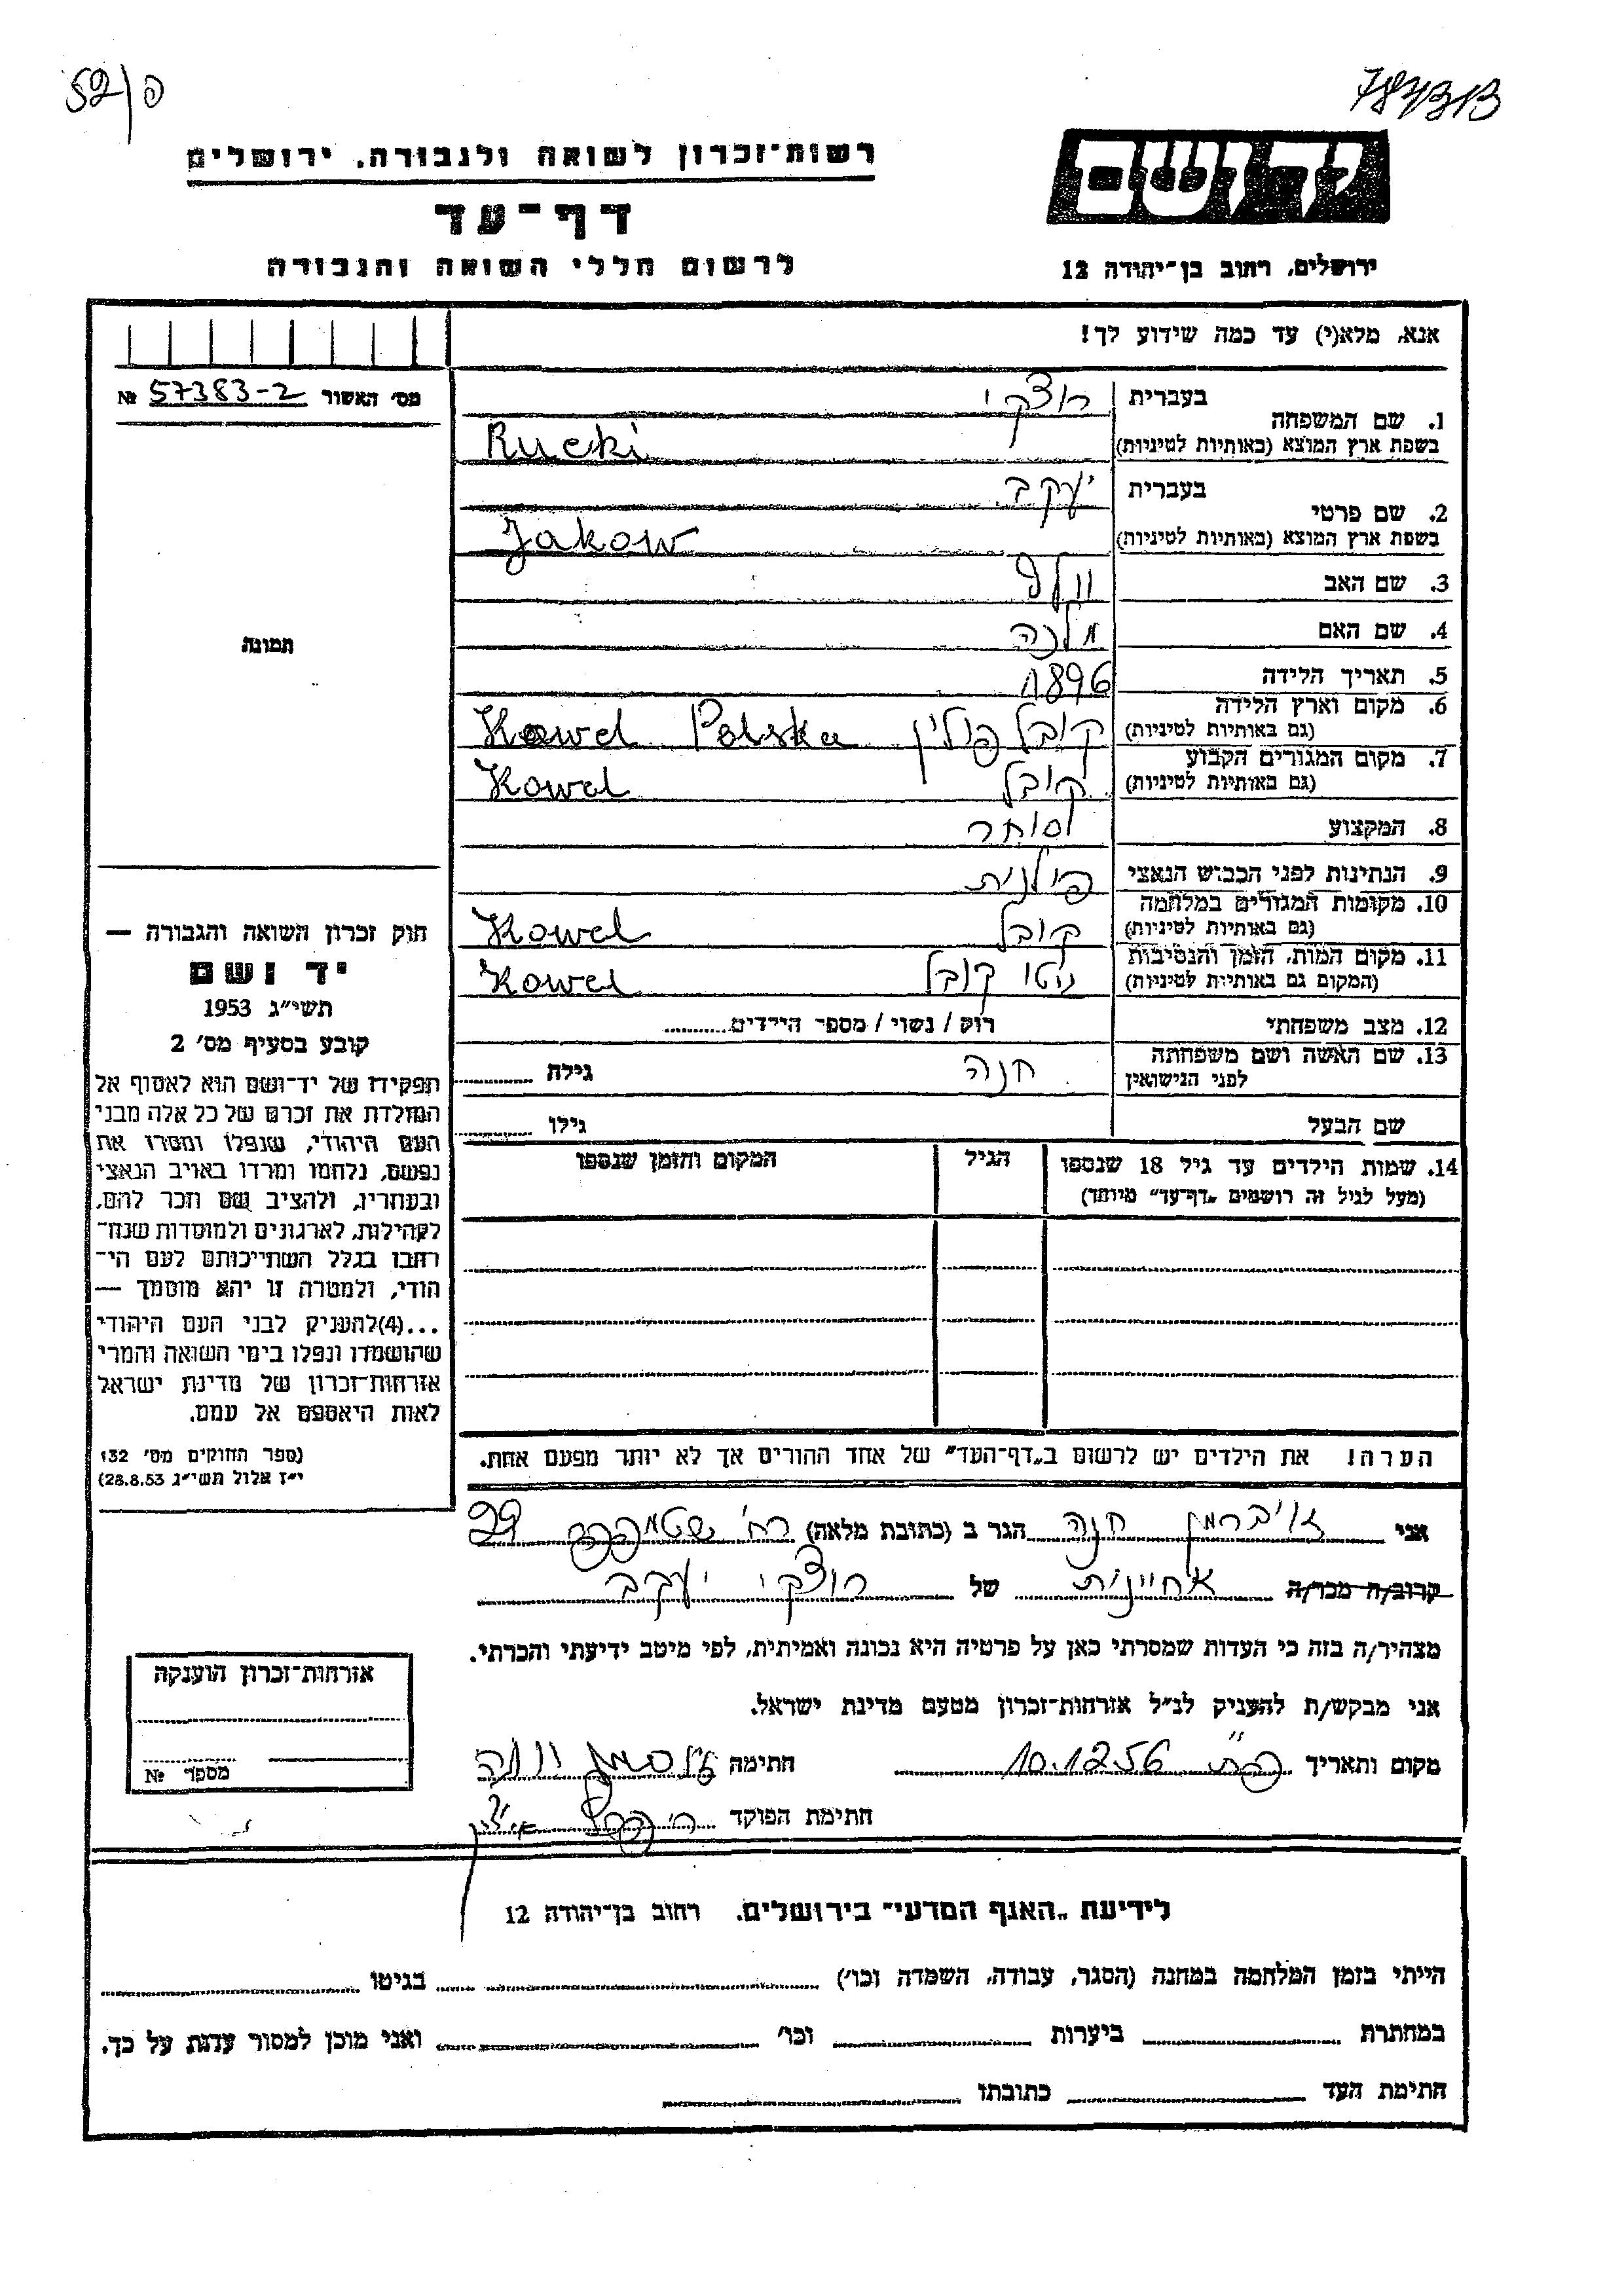 פ/52
רשות־זכרון לשואה ולגבורה, ירושלים
יד ושם
דף־עד
לרשום חללי השואה והגבורה
ירושלים, רחוב בן־יהודה 12
אנא, מלא(י) עד כמה שידוע לך!
מס׳ האשור № 57383-2
1. שם המשפחה בעברית רוצקי
בשפת ארץ המוצא (באותיות לטיניות) Rucki
2. שם פרטי בעברית יעקב
בשפת ארץ המוצא (באותיות לטיניות) Jakow
3. שם האב וולף
4. שם האם מלכה
תמונה
5. תאריך הלידה 1896
6. מקום וארץ הלידה קובל פולין Kowel Polska
(גם באותיות לטיניות)
7. מקום המגורים הקבוע
(גם באותיות לטיניות) קובל Kowel
8. המקצוע סוחר
9. הנתינות לפני הכבוש הנאצי פולנית
10. מקומות המגורים במלחמה
(גם באותיות לטיניות) קובל Kowel
11. מקום המות, הזמן והנסיבות
(המקום גם באותיות לטיניות) גיטו קובל Kowel
12. מצב משפחתי רוק / נשוי / מספר הילדים
13. שם האשה ושם משפחתה
לפני הנישואין חנה גילה
שם הבעל גילו
14. שמות הילדים עד גיל 18 שנספו הגיל המקום והזמן שנספו
(מעל לגיל זה רושמים „דף־עד” מיוחד)
חוק זכרון השואה והגבורה —
יד ושם
תשי״ג 1953
קובע בסעיף מס׳ 2
תפקידו של יד־ושם הוא לאסוף אל
המולדת את זכרם של כל אלה מבני
העם היהודי, שנפלו ומסרו את
נפשם, נלחמו ומרדו באויב הנאצי
ובעוזריו, ולהציב שם וזכר להם,
לקהילות, לארגונים ולמוסדות שנח־
רבו בגלל השתייכותם לעם הי־
הודי, ולמטרה זו יהא מוסמך —
...(4)להעניק לבני העם היהודי
שהושמדו ונפלו בימי השואה והמרי
אזרחות־זכרון של מדינת ישראל
לאות היאספם אל עמם.
(ספר החוקים מס׳ 132
י״ז אלול תשי״ג 28.8.53)
הערה! את הילדים יש לרשום ב„דף־העד” של אחד ההורים אך לא יותר מפעם אחת.
אני חנה הגר ב (כתובת מלאה) רח׳ שטמפפר 29
קרוב/ה מכר/ה אחיינית של רוצקי יעקב
מצהיר/ה בזה כי העדות שמסרתי כאן על פרטיה היא נכונה ואמיתית, לפי מיטב ידיעתי והכרתי.
אני מבקש/ת להעניק לנ״ל אזרחות־זכרון מטעם מדינת ישראל.
מקום ותאריך פ״ת 10.12.56 חתימה
חתימת הפוקד
אזרחות־זכרון הוענקה
מספר №
לידיעת „האגף המדעי” בירושלים, רחוב בן־יהודה 12
הייתי בזמן המלחמה במחנה (הסגר, עבודה, השמדה וכו׳) בגיטו
במחתרת ביערות וכו׳ ואני מוכן למסור עדות על כך.
חתימת העד כתובתו